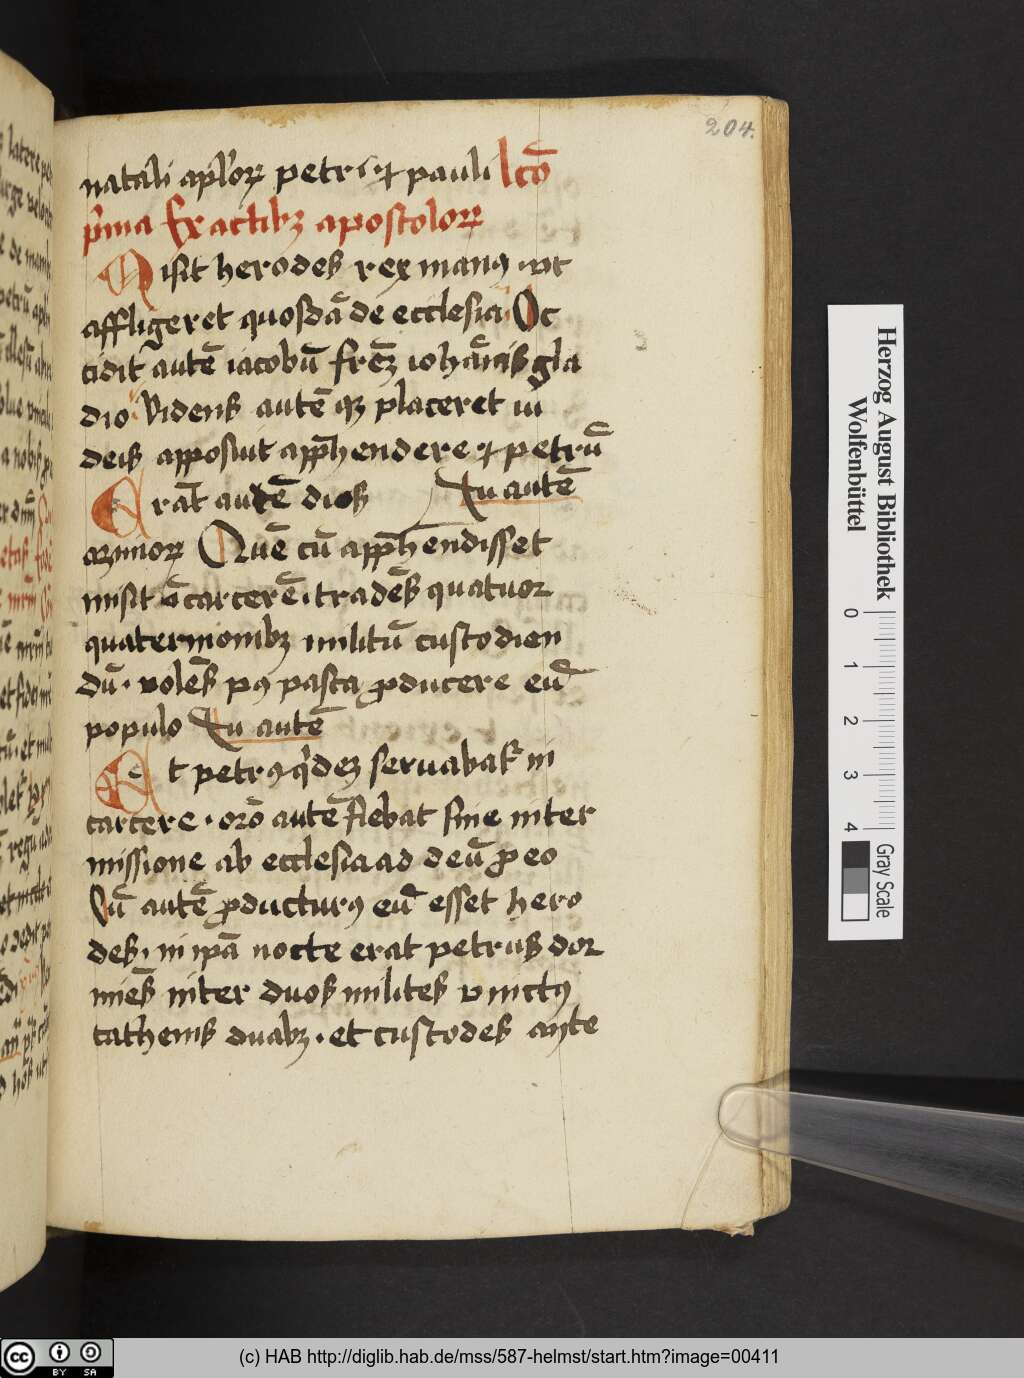 204.
natali aplor̄ꝝ petri ⁊ pauli lcō
p̍ma Ex actibꝫ apostoloꝝ
Misit herodes rex manꝰ vt
affligeret quosdā de ecclesia Oc
cidit autē iacobū frēꝫ iohānis gla
dio Videns autē qꝫ placeret iu
deis apposuit app̄hendere ⁊ petrū
Erāt autē dies Tu autē
azimoꝝ Quē cū app̄hendisset
misit ī carcerē tradēs quatuor
quaternionibꝫ militū custodien
dū volēs pꝰ pasca ꝓducere eū
populo Tu autē
Et petrꝰ q̍deꝫ seruabat᷑ in
carcere orō autē fiebat sine inter
missione ab ecclesia ad deū ꝓ eo
Cū autē ꝓducturꝰ eū esset hero
des in ip̄a nocte erat petrus dor
miēs inter duos milites vinctꝰ
cathenis duabꝫ et custodes ante
Herzog August Bibliothek
Wolfenbüttel
0 1 2 3 4
Gray Scale
cc BY SA
(c) HAB http://diglib.hab.de/mss/587-helmst/start.htm?image=00411